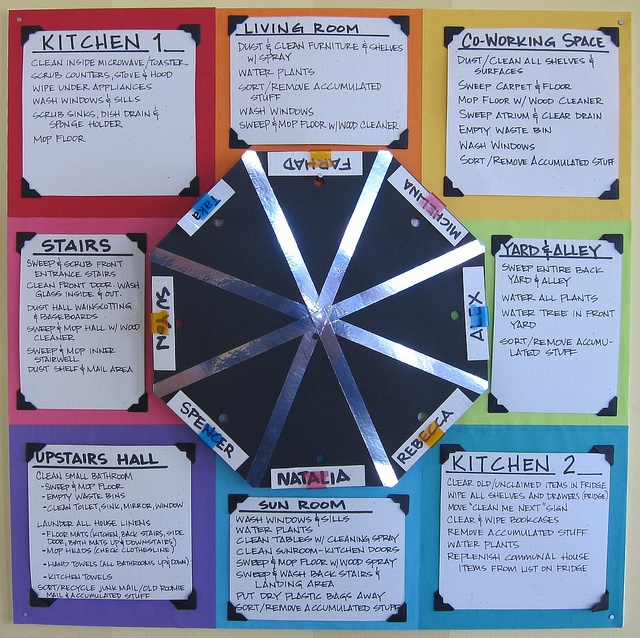 KITCHEN 1
CLEAN INSIDE MICROWAVE/TOASTER
SCRUB COUNTERS, STOVE & HOOD
WIPE UNDER APPLIANCES
WASH WINDOWS & SILLS
SCRUB SINKS, DISH DRAIN &
SPONGE HOLDER
MOP FLOOR
LIVING ROOM
DUST & CLEAN FURNITURE & SHELVES
W/ SPRAY
WATER PLANTS
SORT/REMOVE ACCUMULATED
STUFF
WASH WINDOWS
SWEEP & MOP FLOOR W/WOOD CLEANER
CO-WORKING SPACE
DUST/CLEAN ALL SHELVES &
SURFACES
SWEEP CARPET & FLOOR
MOP FLOOR W/ WOOD CLEANER
SWEEP ATRIUM & CLEAR DRAIN
EMPTY WASTE BIN
WASH WINDOWS
SORT/REMOVE ACCUMULATED STUFF
FARHAD
Taka
MICHELINA
STAIRS
SWEEP & SCRUB FRONT
ENTRANCE STAIRS
CLEAN FRONT DOOR. WASH
GLASS INSIDE & OUT.
DUST HALL WAINSCOTTING
& BASEBOARDS
SWEEP & MOP HALL W/ WOOD
CLEANER
SWEEP & MOP INNER
STAIRWELL
DUST SHELF & MAIL AREA
SUYON
ALEX
YARD & ALLEY
SWEEP ENTIRE BACK
YARD & ALLEY
WATER ALL PLANTS
WATER TREE IN FRONT
YARD
SORT/REMOVE ACCUMU-
LATED STUFF
SPENCER
REBECCA
NATALIA
UPSTAIRS HALL
CLEAN SMALL BATHROOM
-SWEEP & MOP FLOOR
-EMPTY WASTE BINS
-CLEAN TOILET, SINK, MIRROR, WINDOW
LAUNDER ALL HOUSE LINENS
-FLOOR MATS (KITCHEN, BACK STAIRS, SIDE
DOOR, BATH MATS UP & DOWNSTAIRS)
-MOP HEADS (CHECK CLOTHESLINE)
-HAND TOWELS (ALL BATHROOMS UP & DOWN)
-KITCHEN TOWELS
SORT/RECYCLE JUNK MAIL/OLD ROOMIE
MAIL & ACCUMULATED STUFF
SUN ROOM
WASH WINDOWS & SILLS
WATER PLANTS
CLEAN TABLES W/ CLEANING SPRAY
CLEAN SUNROOM-KITCHEN DOORS
SWEEP & MOP FLOOR W/ WOOD SPRAY
SWEEP & WASH BACK STAIRS &
LANDING AREA
PUT DRY PLASTIC BAGS AWAY
SORT/REMOVE ACCUMULATED STUFF
KITCHEN 2
CLEAR OLD/UNCLAIMED ITEMS IN FRIDGE
WIPE ALL SHELVES AND DRAWERS (FRIDGE)
MOVE "CLEAN ME NEXT" SIGN
CLEAR & WIPE BOOKCASES
REMOVE ACCUMULATED STUFF
WATER PLANTS
REPLENISH COMMUNAL HOUSE
ITEMS FROM LIST ON FRIDGE